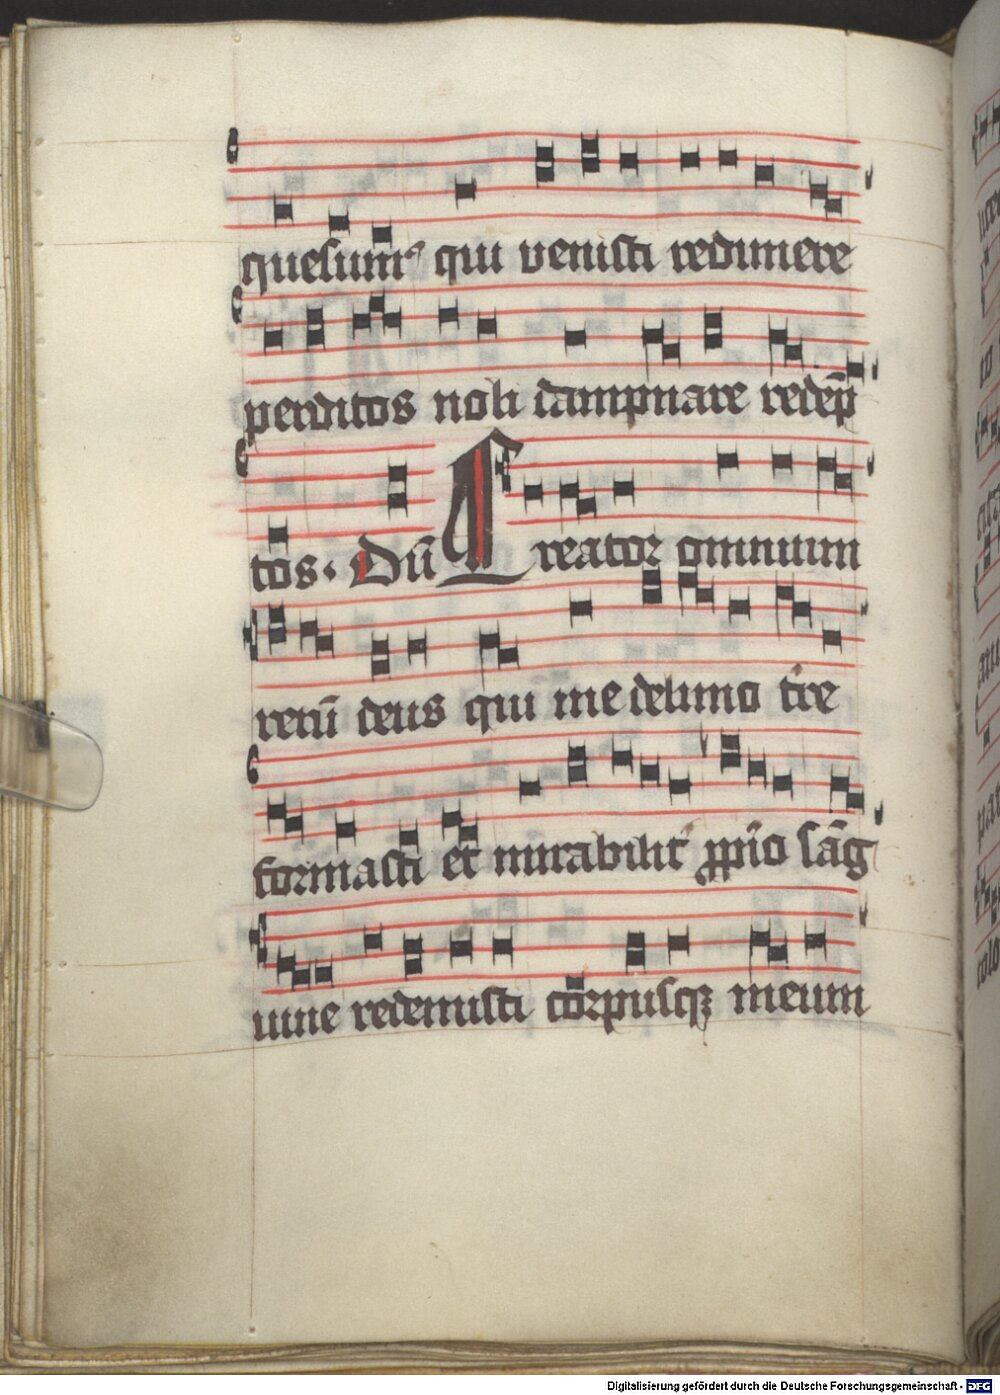 quesumꝰ qui venisti redimere
perditos noli dampnare redēp
tos. Dū Creator omnium
rerū deus qui me de limo tre
formasti et mirabilit̉ ꝓprio sāg
uine redemisti corpusqꝫ meum
Digitalisierung gefördert durch die Deutsche Forschungsgemeinschaft - DFG